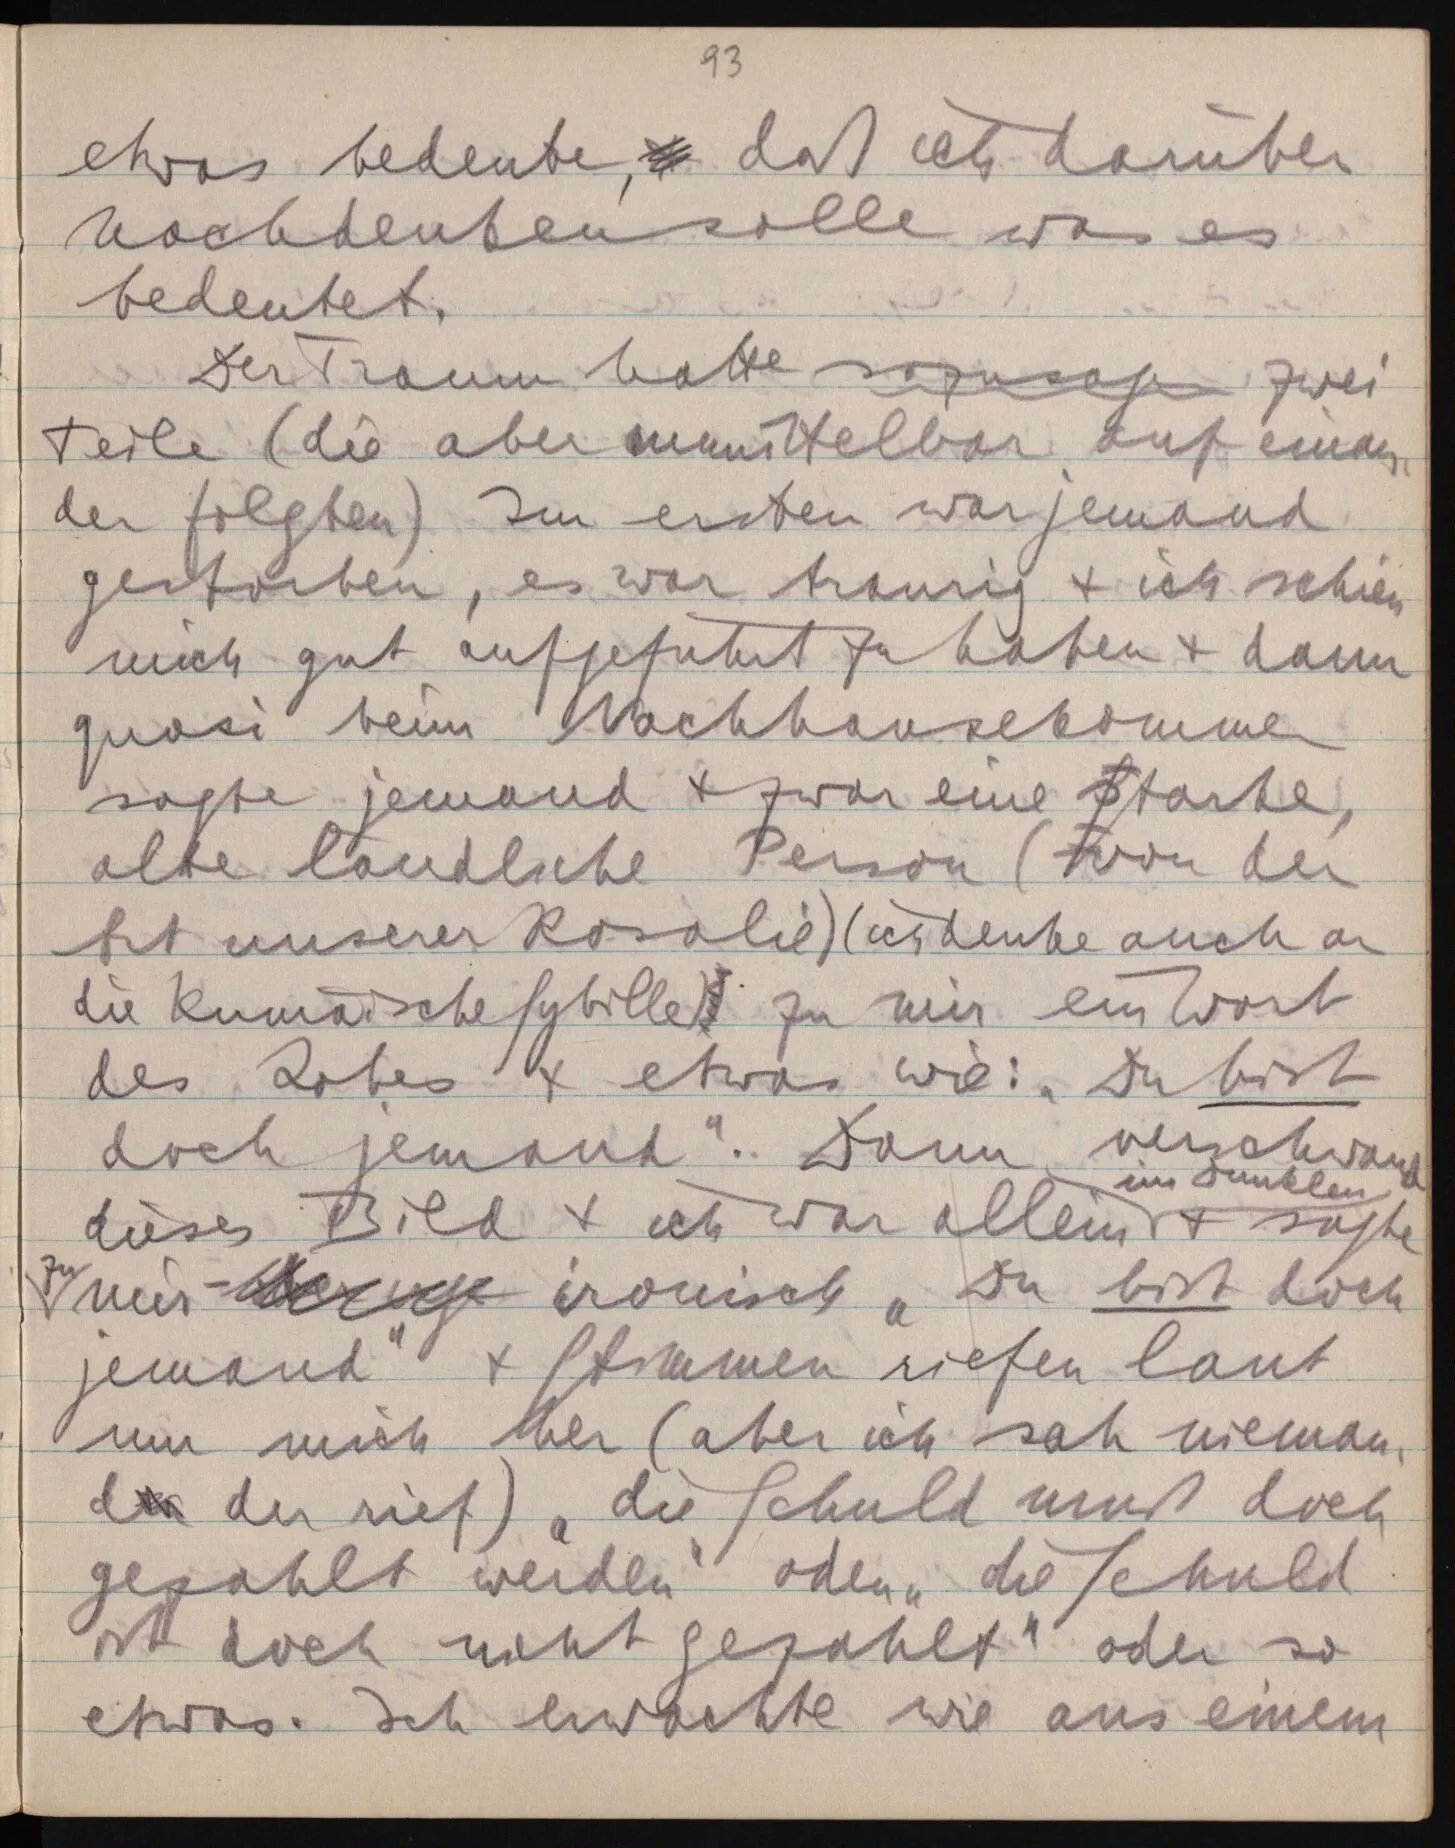 93
etwas bedeute, daß ich darüber
nachdenken solle was es
bedeutet.
Der Traum hatte sozusagen zwei
Teile (die aber unmittelbar auf einan-
der folgten) Im ersten war jemand
gestorben, es war traurig & ich schien
mich gut aufgeführt zu haben & dann
quasi beim Nachhausekommen
sagte jemand & zwar eine starke,
alte ländliche Person (von der
Art unserer Rosalie) (ich denke auch an
die Kumäische Sybille) zu mir ein Wort
des Lobes & etwas wie: „Du bist
doch jemand“. Dann verschwand
dieses Bild & ich war allein im Dunklen & sagte
zu mir – ironisch „Du bist doch
jemand“ & Stimmen riefen laut
um mich her (aber ich sah nieman-
d der rief) „die Schuld muß doch
gezahlt werden“ oder „die Schuld
ist doch nicht gezahlt“ oder so
etwas. Ich erwachte wie aus einem